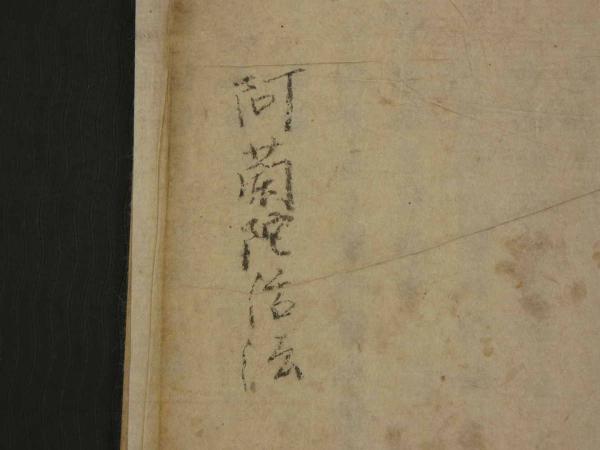 阿蘭陀治法